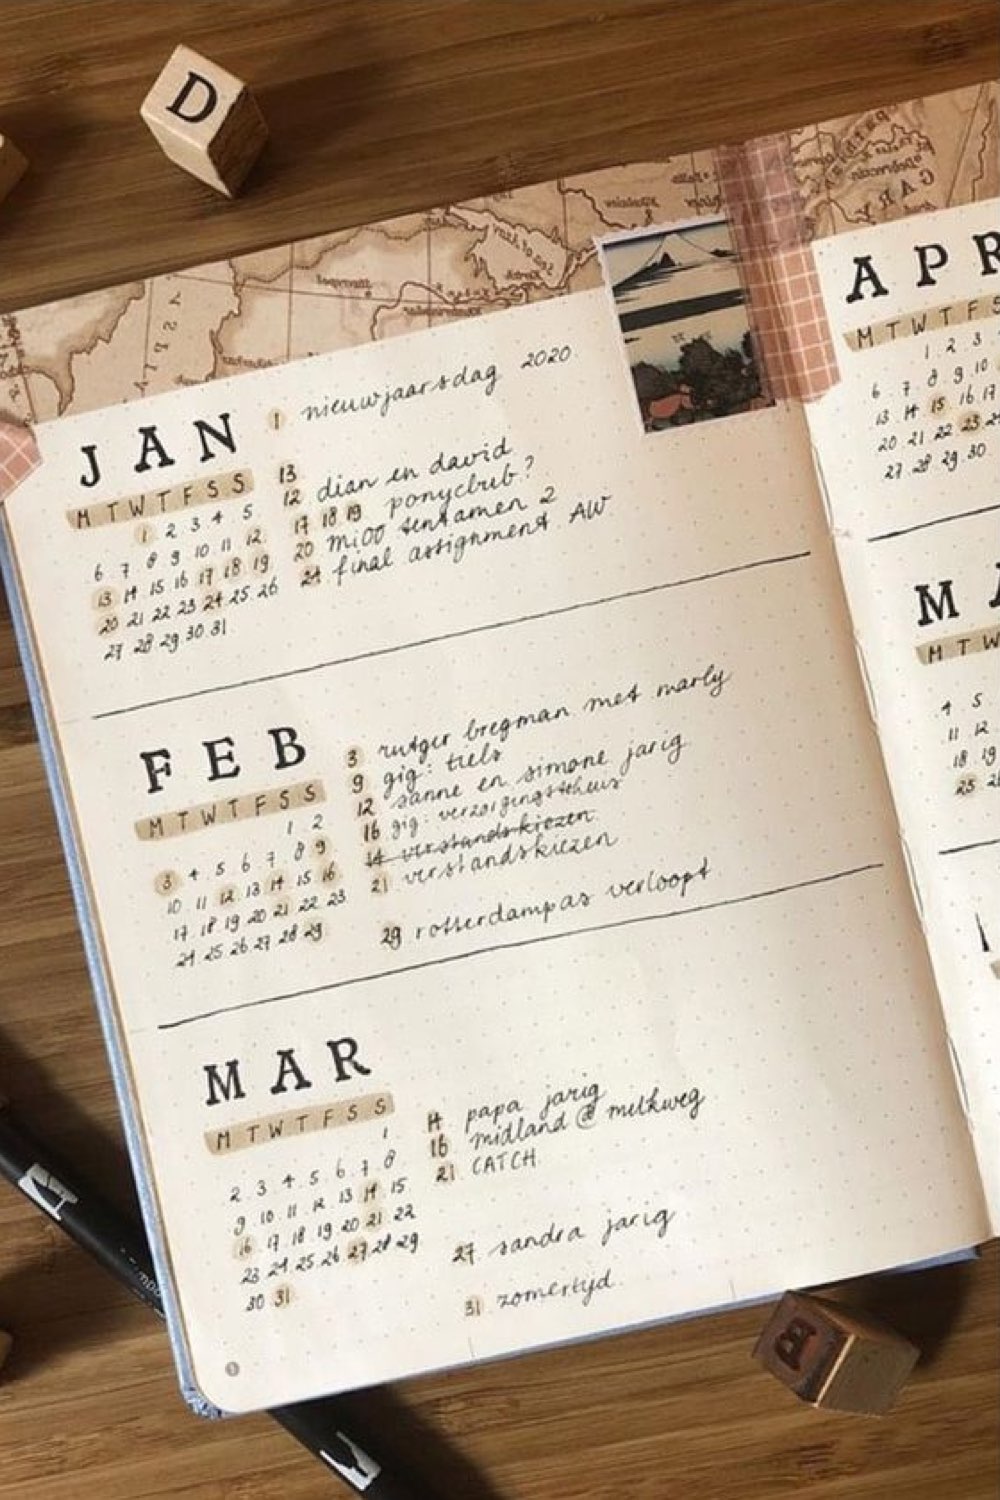 D
JAN
M T W T F S S
1 2 3 4 5
6 7 8 9 10 11 12
13 14 15 16 17 18 19
20 21 22 23 24 25 26
27 28 29 30 31
1 nieuwjaarsdag 2020
13
12 dian en david
17 18 19 ponyclub?
20 MiOO tentamen 2
24 final assignment AW
FEB
M T W T F S S
1 2
3 4 5 6 7 8 9
10 11 12 13 14 15 16
17 18 19 20 21 22 23
24 25 26 27 28 29
3 rutger bregman met marly
9 gig: tiels
12 sanne en simone jarig
16 gig: verzorgingstehuis
14 verstandskiezen
21 verstandskiezen
29 rotterdampas verloopt
MAR
M T W T F S S
1
2 3 4 5 6 7 8
9 10 11 12 13 14 15
16 17 18 19 20 21 22
23 24 25 26 27 28 29
30 31
14 papa jarig
16 midland @ melkweg
21 CATCH
27 sandra jarig
31 zomertijd
1
APR
M T W T F S
1 2 3
6 7 8 9 10
13 14 15 16 17
20 21 22 23 24
27 28 29 30
MA
M T W
4 5
11 12
18 19
25 26
B